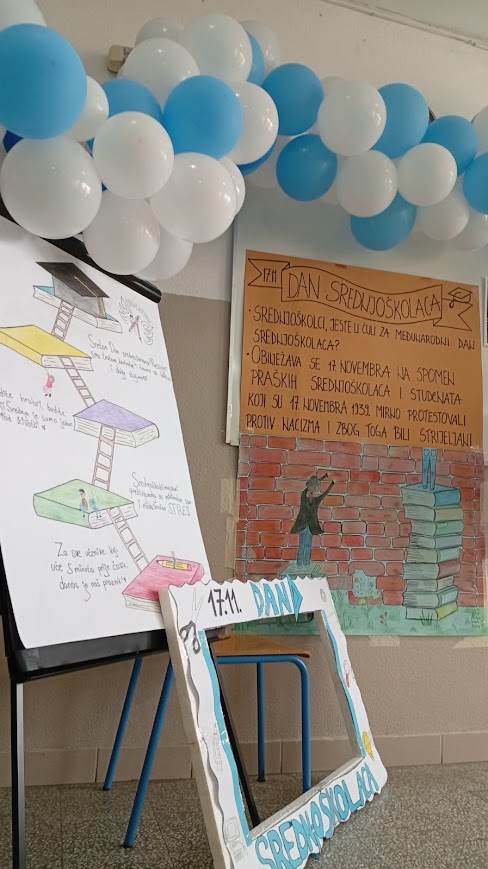 Sretan Dan
hrabri, budite
Srednja je samo jedna
STRES
Za sve učenike koji
uče 5 minuta prije časa,
danas je vaš praznik
17.11. DAN SREDNJOŠKOLACA
• SREDNJOŠKOLCI, JESTE LI ČULI ZA MEĐUNARODNI DAN
SREDNJOŠKOLACA?
• OBILJEŽAVA SE 17. NOVEMBRA NA SPOMEN
PRAŠKIH SREDNJOŠKOLACA I STUDENATA
KOJI SU 17. NOVEMBRA 1939. MIRNO PROTESTOVALI
PROTIV NACIZMA I ZBOG TOGA BILI STRIJELJANI
17.11. DAN
SREDNJOŠKOLACA